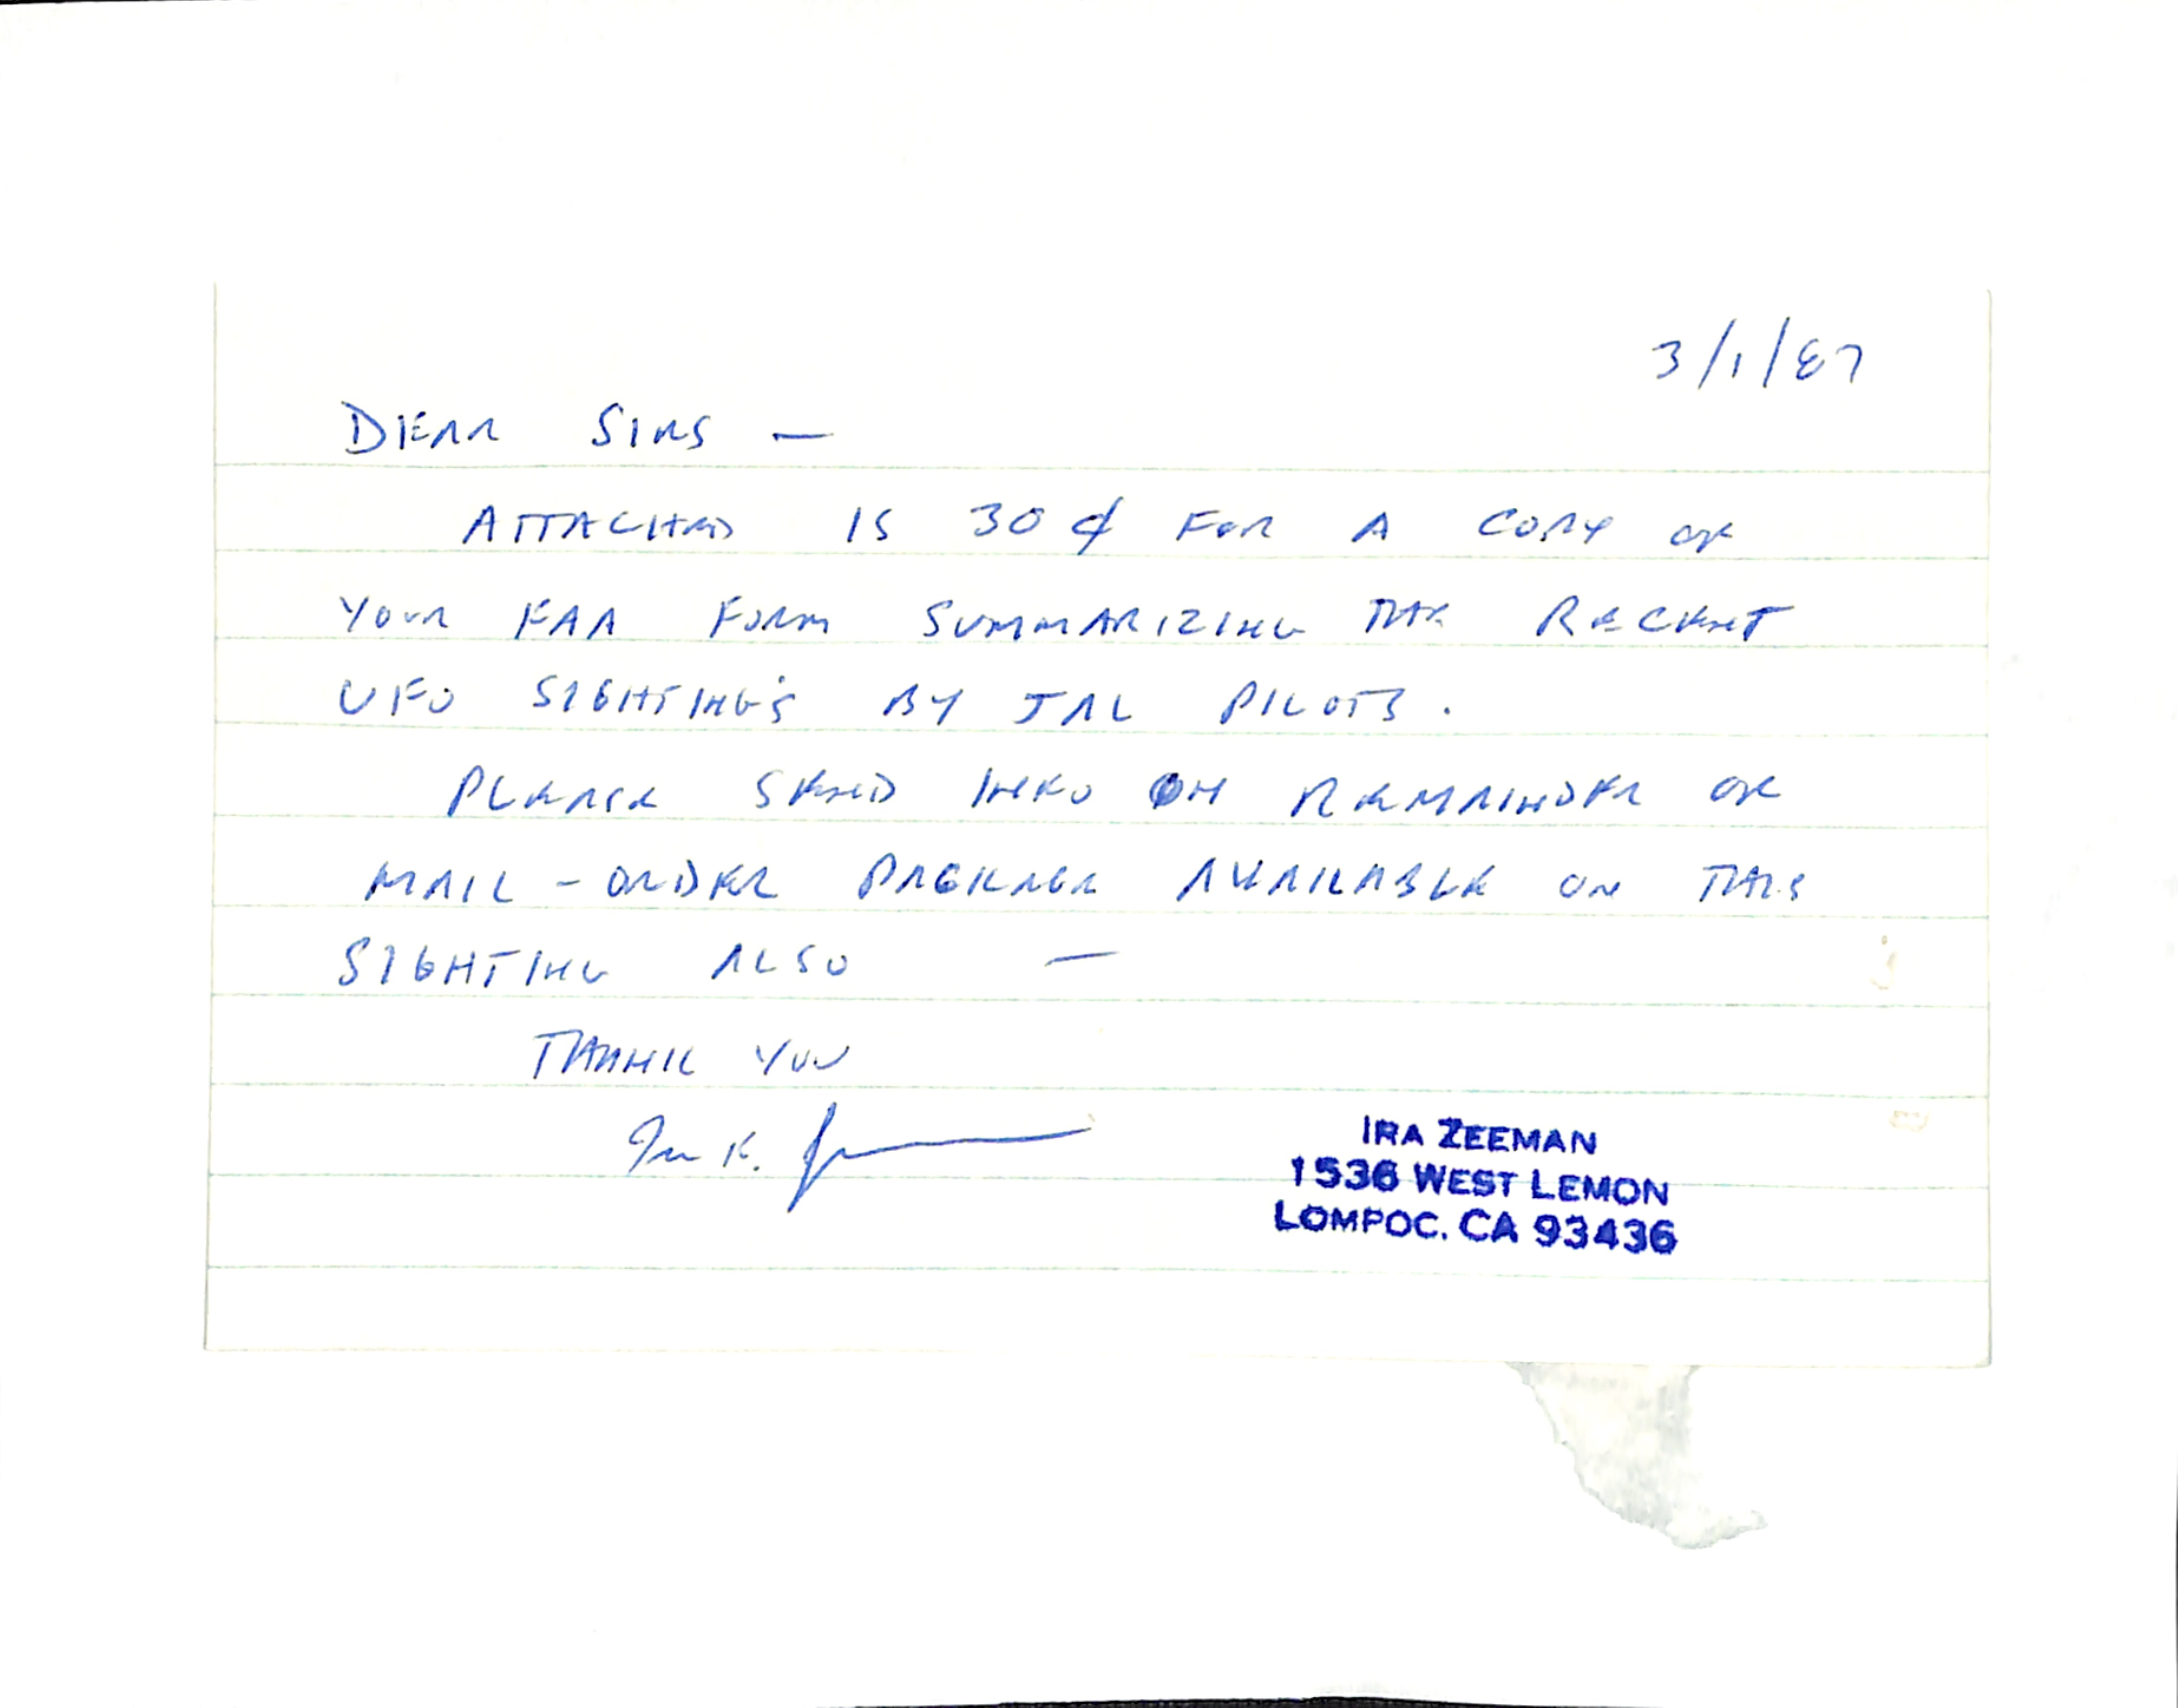 3/1/87
DEAR SIRS —
ATTACHED IS 30¢ FOR A COPY OF
YOUR FAA FORM SUMMARIZING THE RECENT
UFO SIGHTING'S BY JAL PILOTS.
PLEASE SEND INFO ON REMAINDER OF
MAIL-ORDER PACKAGE AVAILABLE ON THIS
SIGHTING ALSO —
THANK YOU
Ira K.
IRA ZEEMAN
1536 WEST LEMON
LOMPOC. CA 93436